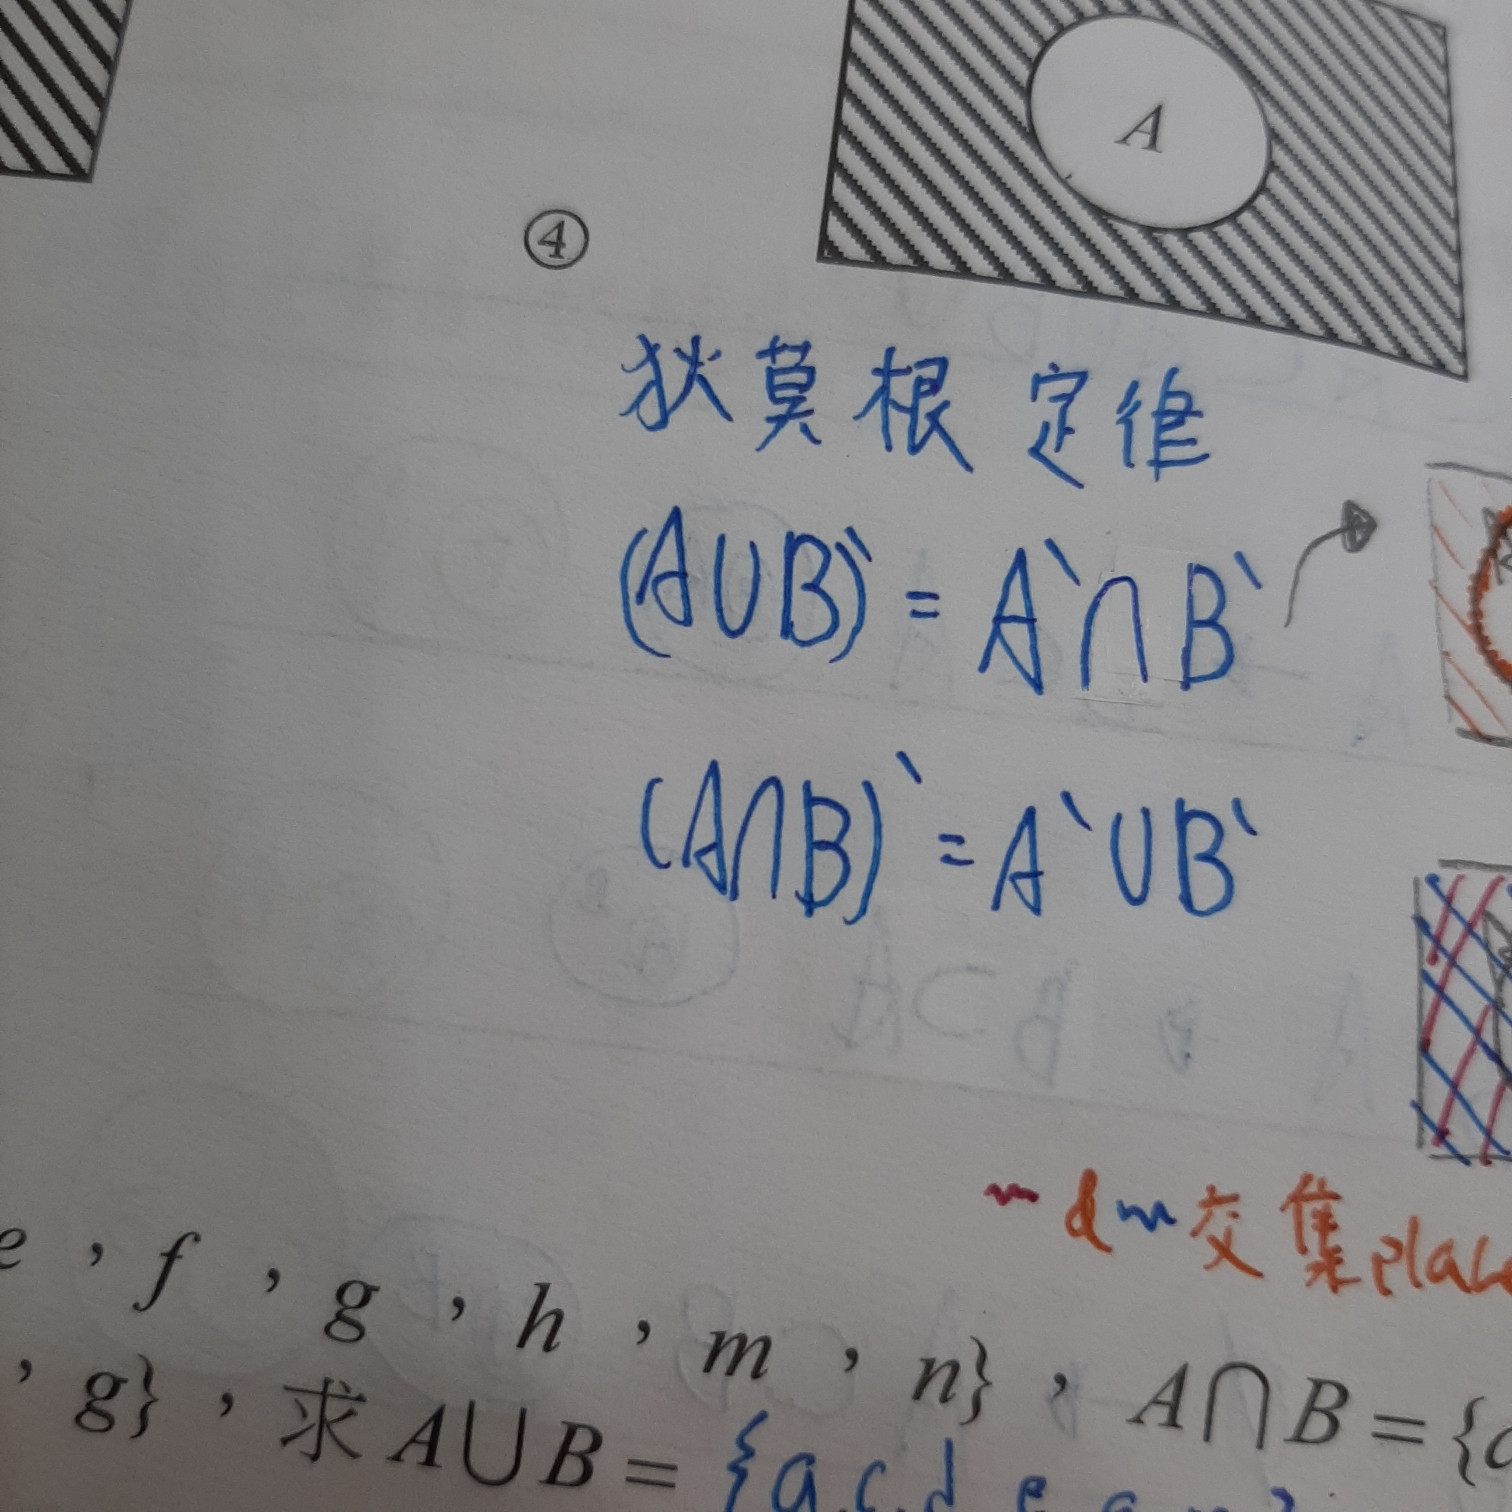 A
④
狄莫根定律
(A∪B)` = A`∩B`
(A∩B)` = A`∪B`
交集place
e，f，g，h，m，n}，A∩B={
，g}，求A∪B= {a.c.d e